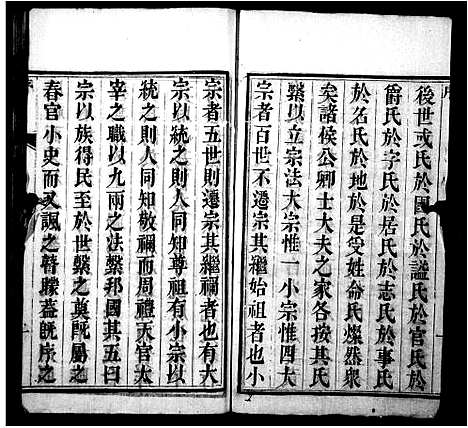 後世或氏於國氏於諡氏於官氏於
爵氏於字氏於居氏於志氏於事氏
於名氏於地於是受姓命氏燦然衆
矣諸侯公卿士大夫之家各按其氏
繫以立宗法大宗惟一小宗惟四大
宗者百世不遷宗其繼始祖者也小
宗者五世則遷宗其繼禰者也有大
宗以統之則人同知尊祖有小宗以
統之則人同知敬禰而周禮天官太
宰之職以九兩之法繫邦國其五曰
宗以族得民至於世繫之奠旣屬之
春官小史而又諷之瞽矇蓋旣序之